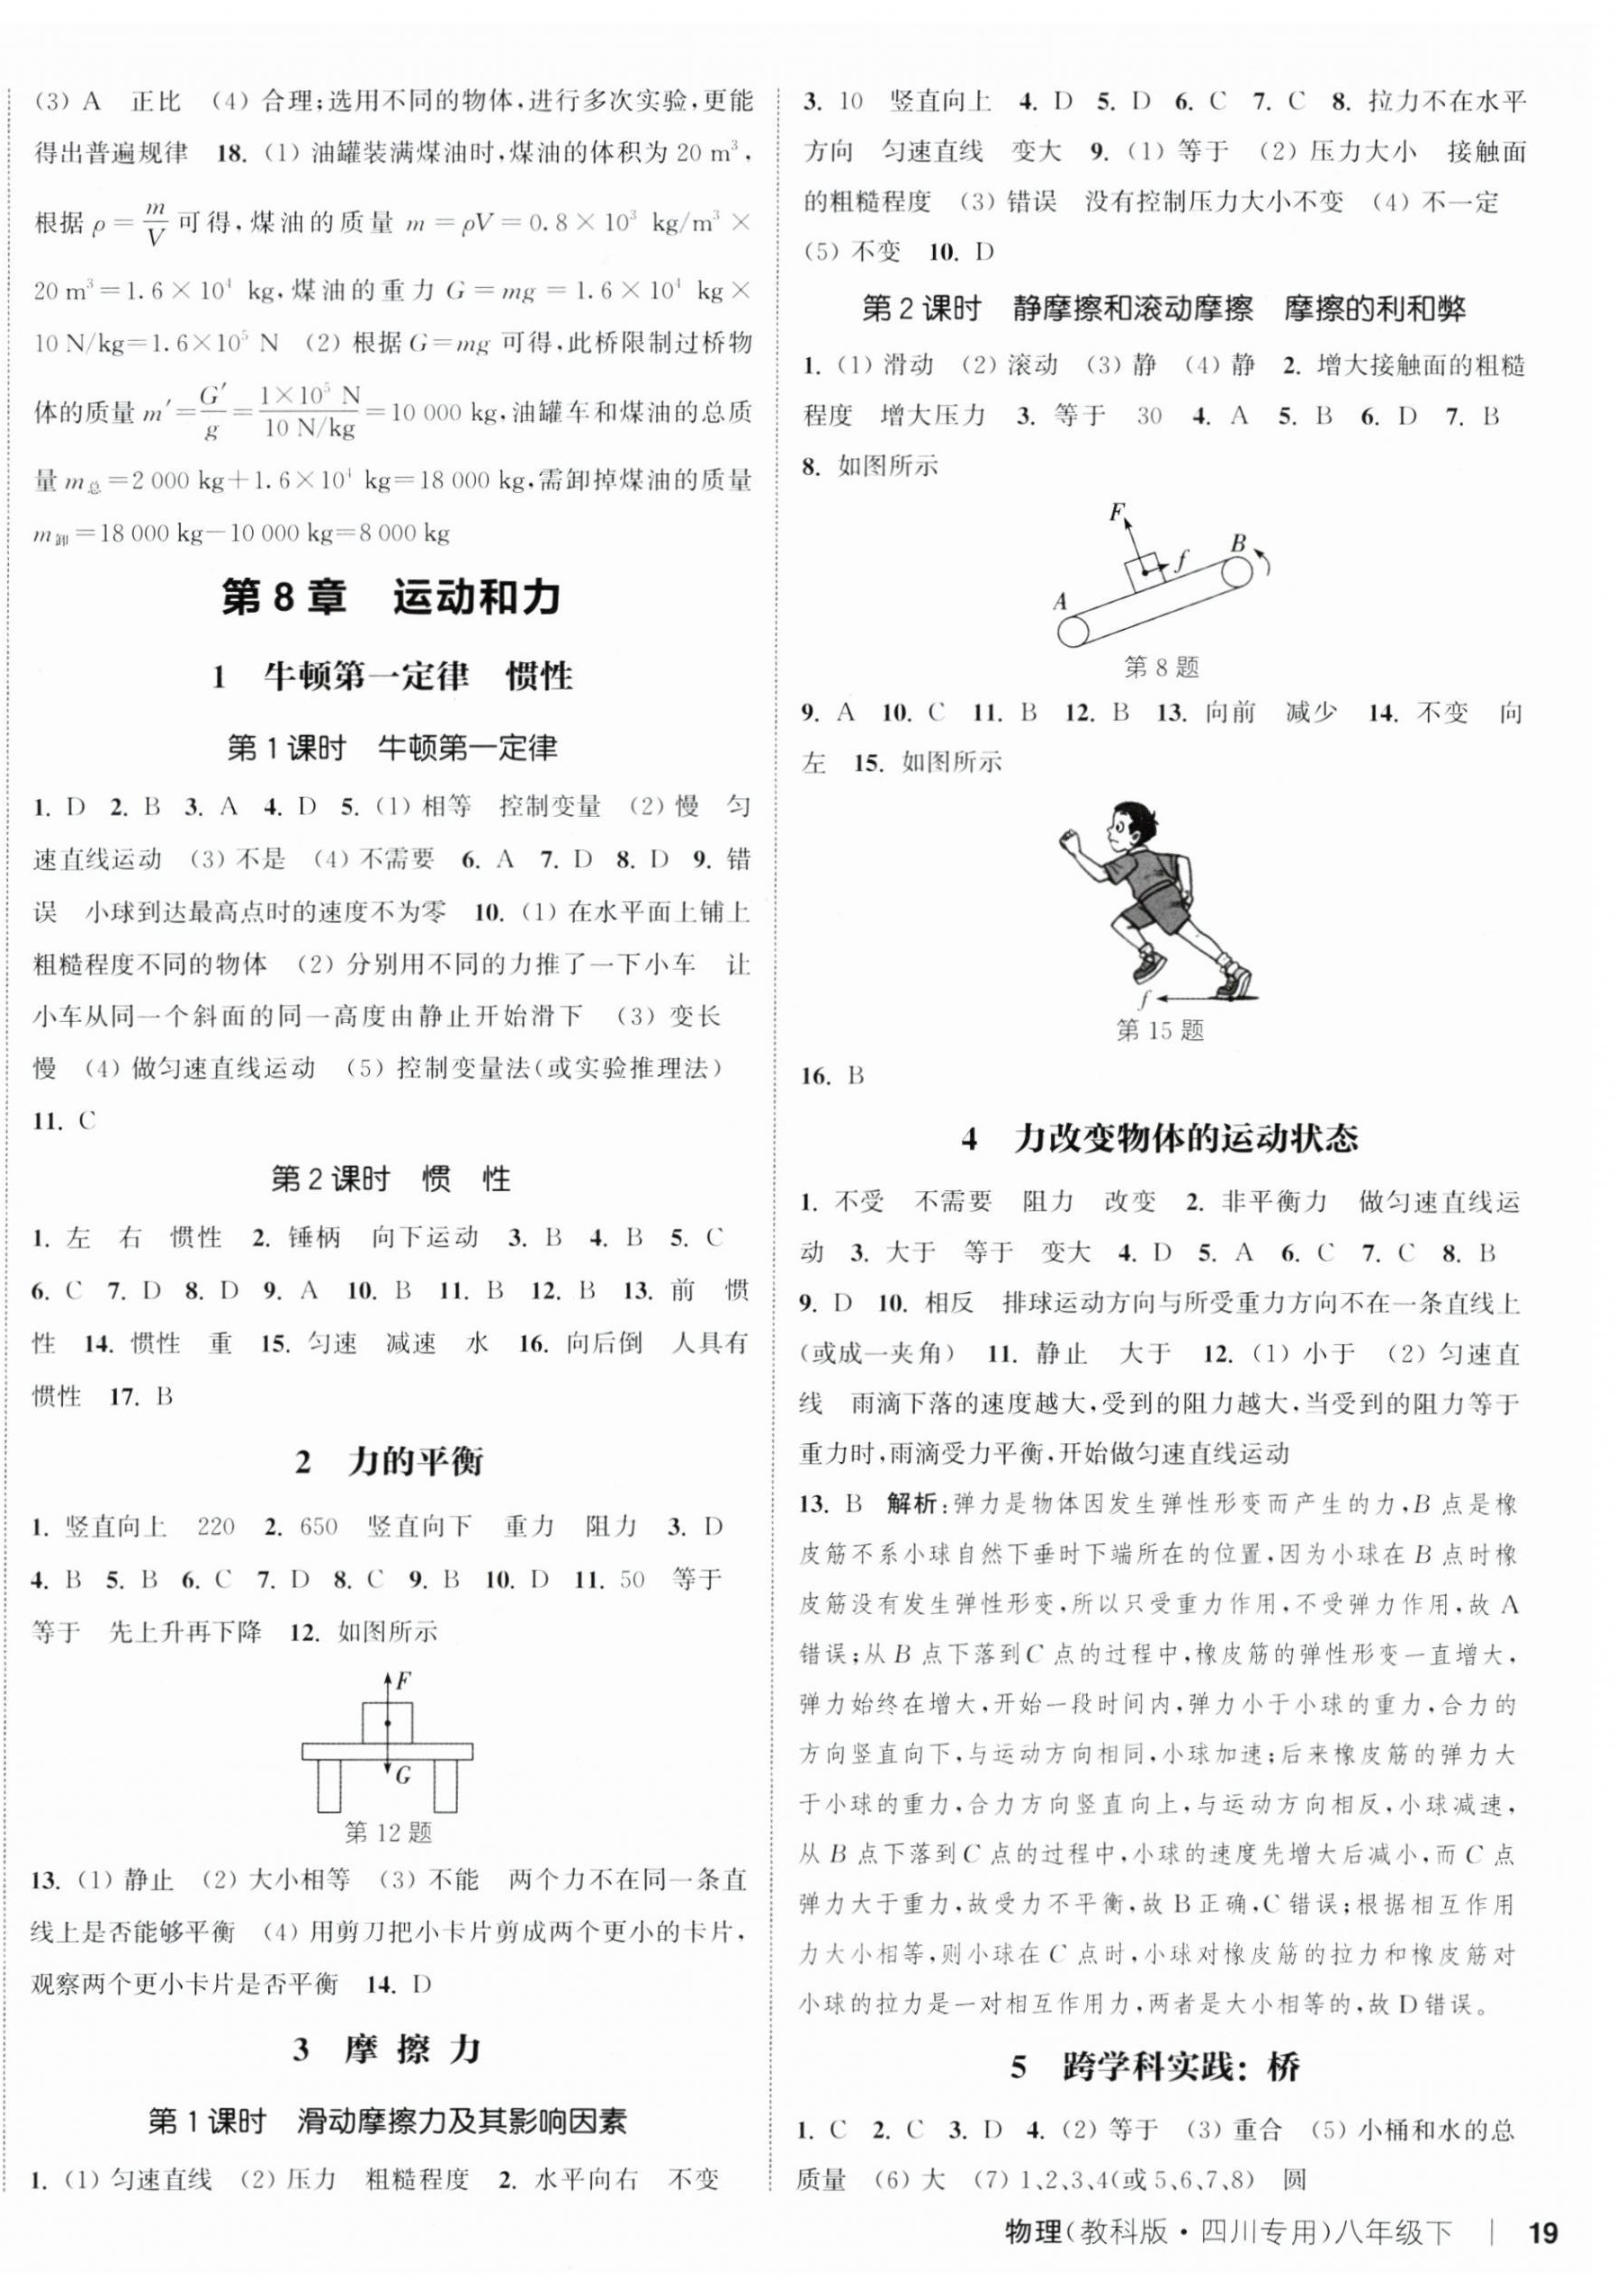 (3) A　正比　(4) 合理;选用不同的物体,进行多次实验,更能
得出普遍规律　18. (1) 油罐装满煤油时,煤油的体积为 20 m³,
根据 ρ = m/V 可得,煤油的质量 m = ρV = 0.8 × 10³ kg/m³ ×
20 m³ = 1.6 × 10⁴ kg,煤油的重力 G = mg = 1.6 × 10⁴ kg ×
10 N/kg=1.6×10⁵ N　(2) 根据 G=mg 可得,此桥限制过桥物
体的质量 m′ = G′/g = 1×10⁵ N/10 N/kg = 10 000 kg,油罐车和煤油的总质
量 m总 = 2 000 kg + 1.6×10⁴ kg = 18 000 kg,需卸掉煤油的质量
m卸 = 18 000 kg − 10 000 kg = 8 000 kg
第 8 章　运动和力
1　牛顿第一定律　惯性
第 1 课时　牛顿第一定律
1. D　2. B　3. A　4. D　5. (1) 相等　控制变量　(2) 慢　匀
速直线运动　(3) 不是　(4) 不需要　6. A　7. D　8. D　9. 错
误　小球到达最高点时的速度不为零　10. (1) 在水平面上铺上
粗糙程度不同的物体　(2) 分别用不同的力推了一下小车　让
小车从同一个斜面的同一高度由静止开始滑下　(3) 变长
慢　(4) 做匀速直线运动　(5) 控制变量法(或实验推理法)
11. C
第 2 课时　惯　性
1. 左　右　惯性　2. 锤柄　向下运动　3. B　4. B　5. C
6. C　7. D　8. D　9. A　10. B　11. B　12. B　13. 前　惯
性　14. 惯性　重　15. 匀速　减速　水　16. 向后倒　人具有
惯性　17. B
2　力的平衡
1. 竖直向上　220　2. 650　竖直向下　重力　阻力　3. D
4. B　5. B　6. C　7. D　8. C　9. B　10. D　11. 50　等于
等于　先上升再下降　12. 如图所示
F
G
第 12 题
13. (1) 静止　(2) 大小相等　(3) 不能　两个力不在同一条直
线上是否能够平衡　(4) 用剪刀把小卡片剪成两个更小的卡片,
观察两个更小卡片是否平衡　14. D
3　摩 擦 力
第 1 课时　滑动摩擦力及其影响因素
1. (1) 匀速直线　(2) 压力　粗糙程度　2. 水平向右　不变
3. 10　竖直向上　4. D　5. D　6. C　7. C　8. 拉力不在水平
方向　匀速直线　变大　9. (1) 等于　(2) 压力大小　接触面
的粗糙程度　(3) 错误　没有控制压力大小不变　(4) 不一定
(5) 不变　10. D
第 2 课时　静摩擦和滚动摩擦　摩擦的利和弊
1. (1) 滑动　(2) 滚动　(3) 静　(4) 静　2. 增大接触面的粗糙
程度　增大压力　3. 等于　30　4. A　5. B　6. D　7. B
8. 如图所示
F
f
B
A
第 8 题
9. A　10. C　11. B　12. B　13. 向前　减少　14. 不变　向
左　15. 如图所示
f
第 15 题
16. B
4　力改变物体的运动状态
1. 不受　不需要　阻力　改变　2. 非平衡力　做匀速直线运
动　3. 大于　等于　变大　4. D　5. A　6. C　7. C　8. B
9. D　10. 相反　排球运动方向与所受重力方向不在一条直线上
(或成一夹角)　11. 静止　大于　12. (1) 小于　(2) 匀速直
线　雨滴下落的速度越大,受到的阻力越大,当受到的阻力等于
重力时,雨滴受力平衡,开始做匀速直线运动
13. B　解析:弹力是物体因发生弹性形变而产生的力,B 点是橡
皮筋不系小球自然下垂时下端所在的位置,因为小球在 B 点时橡
皮筋没有发生弹性形变,所以只受重力作用,不受弹力作用,故 A
错误;从 B 点下落到 C 点的过程中,橡皮筋的弹性形变一直增大,
弹力始终在增大,开始一段时间内,弹力小于小球的重力,合力的
方向竖直向下,与运动方向相同,小球加速;后来橡皮筋的弹力大
于小球的重力,合力方向竖直向上,与运动方向相反,小球减速,
从 B 点下落到 C 点的过程中,小球的速度先增大后减小,而 C 点
弹力大于重力,故受力不平衡,故 B 正确,C 错误;根据相互作用
力大小相等,则小球在 C 点时,小球对橡皮筋的拉力和橡皮筋对
小球的拉力是一对相互作用力,两者是大小相等的,故 D 错误。
5　跨学科实践: 桥
1. C　2. C　3. D　4. (2) 等于　(3) 重合　(5) 小桶和水的总
质量　(6) 大　(7) 1、2、3、4(或 5、6、7、8)　圆
物理(教科版·四川专用)八年级下 | 19